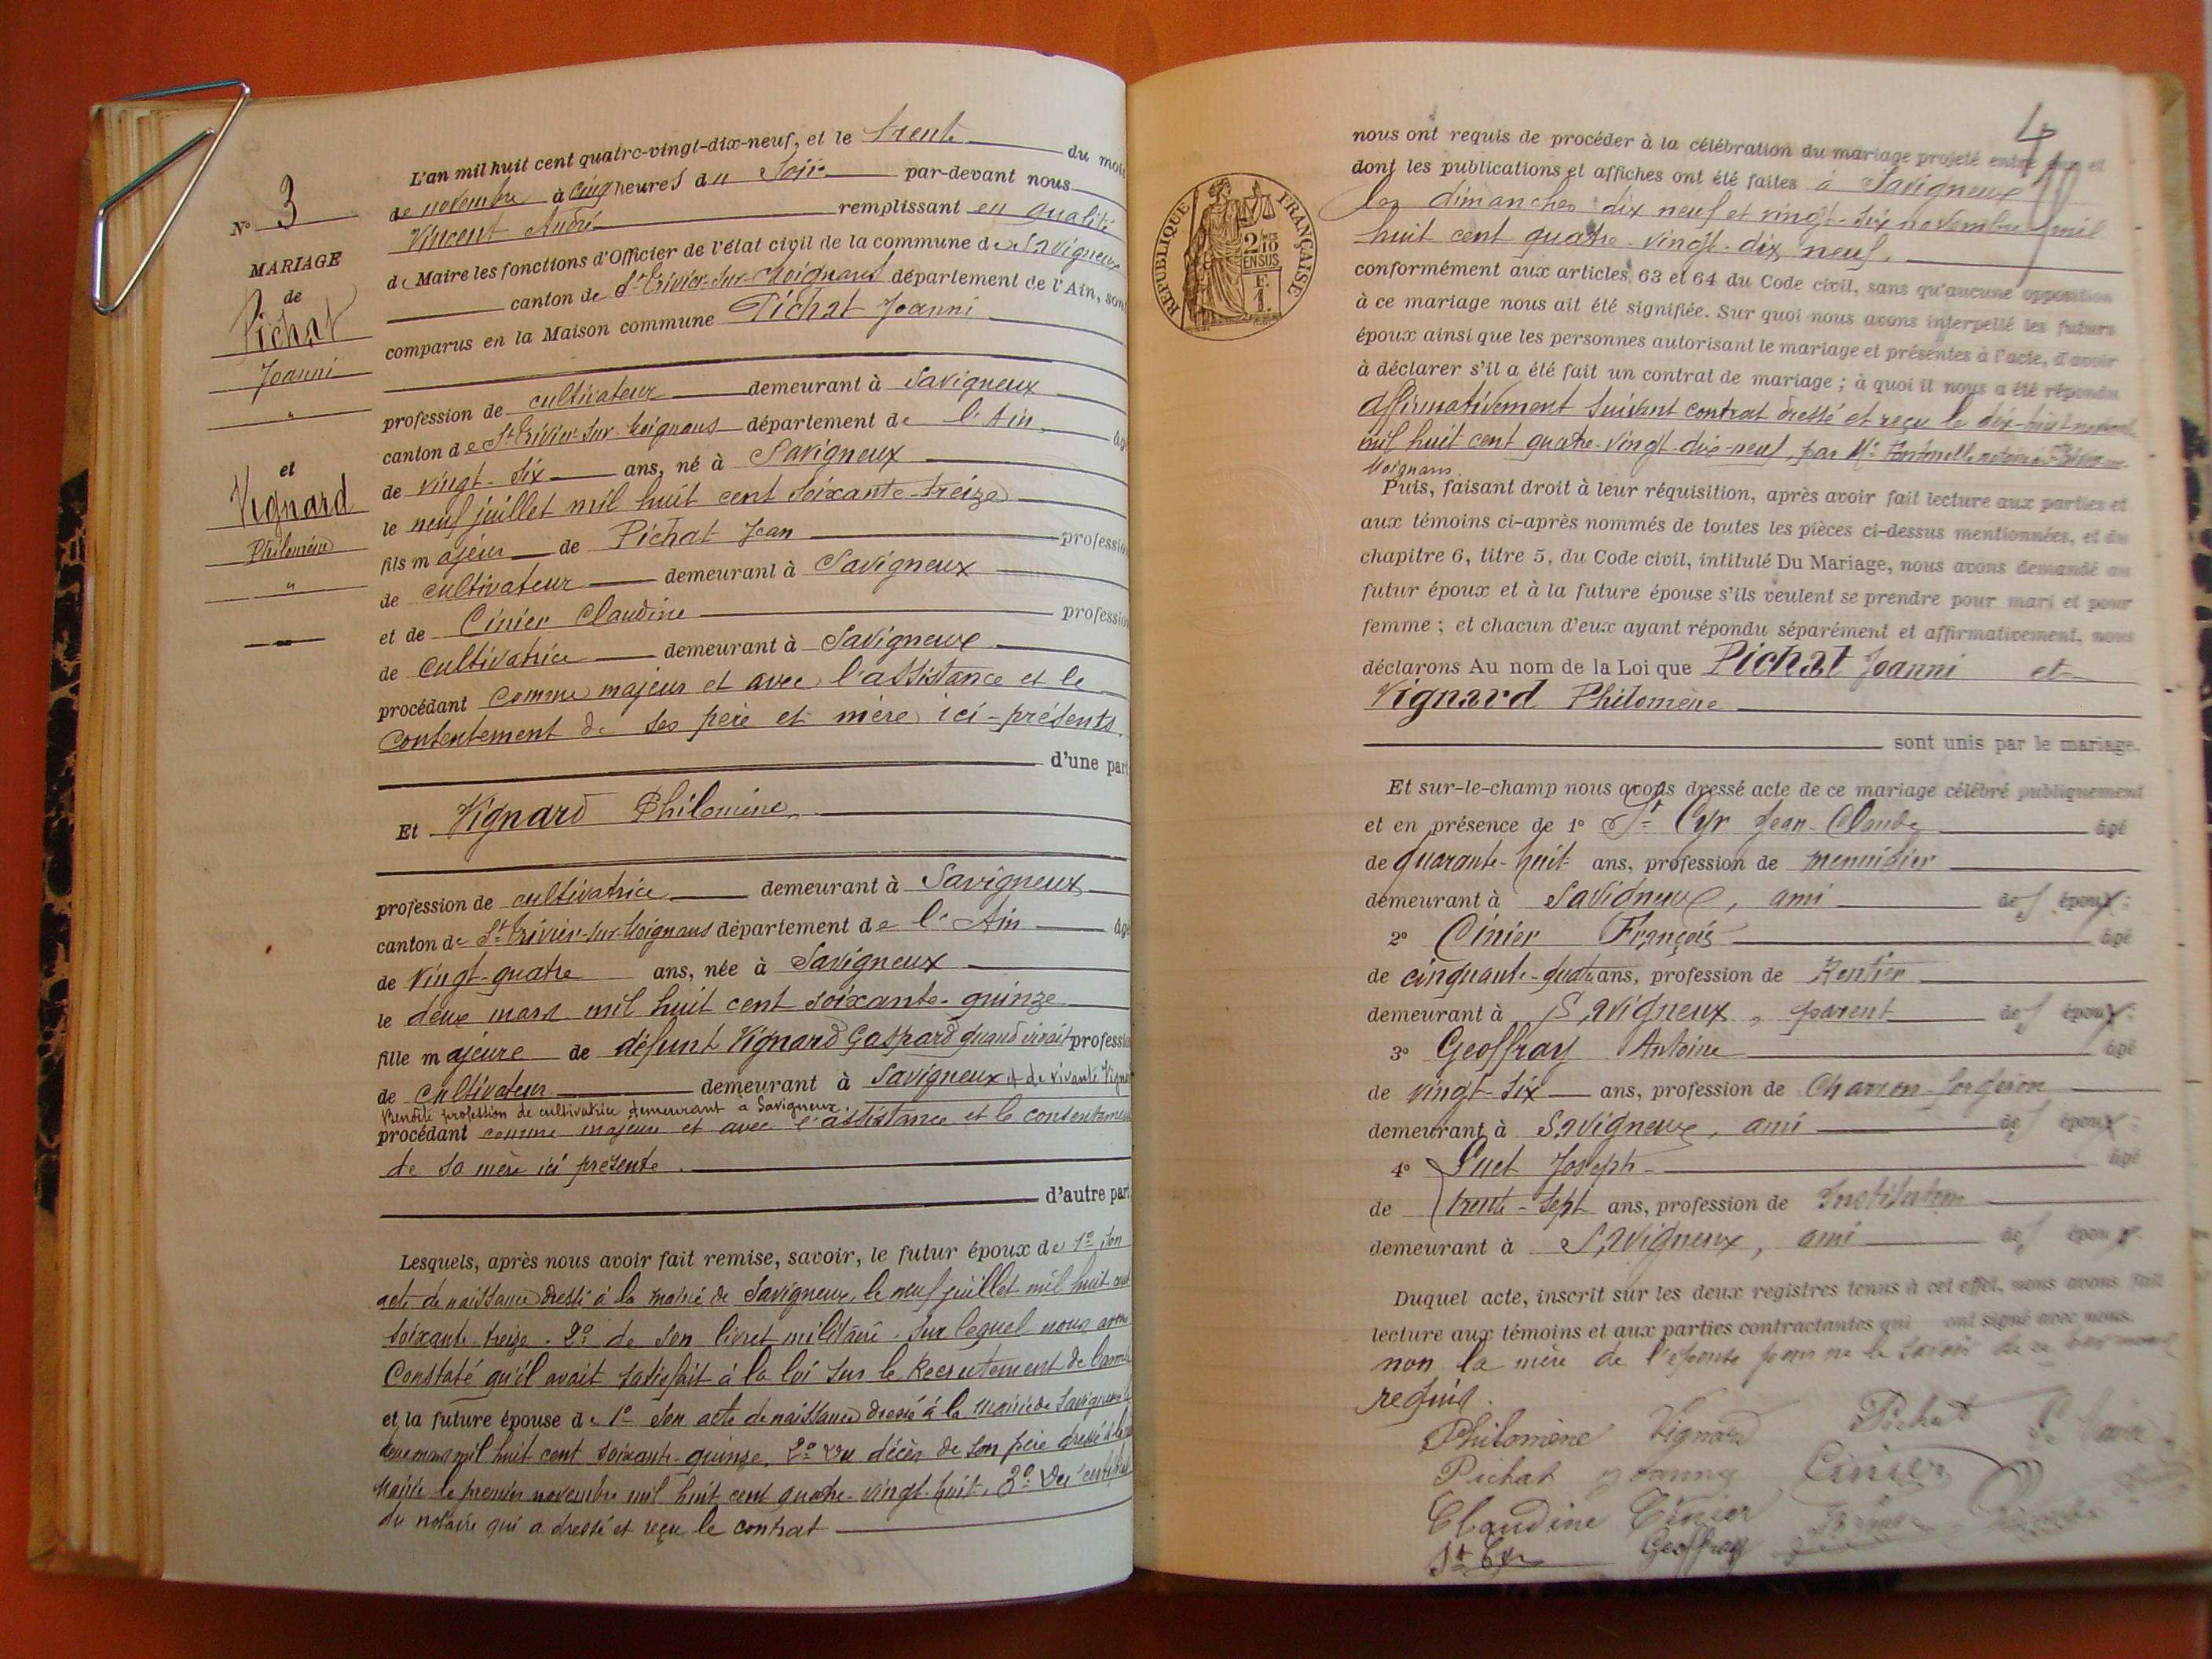 N° 3
MARIAGE
de
Pichat
Joanni
"
et
Vignard
Philomène
"
L'an mil huit cent quatre-vingt-dix-neuf, et le trente du mois
de novembre à cinq heures du Soir par-devant nous
Vincent André remplissant en qualité
de Maire les fonctions d'Officier de l'état civil de la commune de Savigneux
canton de St Trivier-sur-Moignans département de l'Ain, sont
comparus en la Maison commune Pichat Joanni
profession de cultivateur demeurant à Savigneux
canton de St Trivier-sur-Moignans département de l'Ain âgé
de vingt-six ans, né à Savigneux
le neuf juillet mil huit cent soixante-treize
fils majeur de Pichat Jean profession
de cultivateur demeurant à Savigneux
et de Cinier Claudine profession
de cultivatrice demeurant à Savigneux
procédant comme majeur et avec l'assistance et le
consentement de ses père et mère ici-présents.
d'une part
Et Vignard Philomène
profession de cultivatrice demeurant à Savigneux
canton de St Trivier-sur-Moignans département de l'Ain âgé
de vingt-quatre ans, née à Savigneux
le deux mars mil huit cent soixante-quinze
fille majeure de défunt Vignard Gaspard quand vivait profession
de cultivateur demeurant à Savigneux et de vivante Vignard
Benoîte profession de cultivatrice demeurant à Savigneux.
procédant comme majeure et avec l'assistance et le consentement
de sa mère ici présente.
d'autre part
Lesquels, après nous avoir fait remise, savoir, le futur époux de 1° son
acte de naissance dressé à la mairie de Savigneux, le neuf juillet mil huit cent
soixante-treize. 2° de son livret militaire sur lequel nous avons
Constaté qu'il avait satisfait à la loi sur le Recrutement de l'armée
et la future épouse de 1° son acte de naissance dressé à la Mairie de Savigneux le
deux mars mil huit cent soixante-quinze. 2° du décès de son père dressé à la
Mairie le premier novembre mil huit cent quatre-vingt-huit. 3° du certificat
du notaire qui a dressé et reçu le contrat
4
RÉPUBLIQUE FRANÇAISE
2/10 EN SUS
F.
1.
nous ont requis de procéder à la célébration du mariage projeté entre eux et
dont les publications et affiches ont été faites à Savigneux
les dimanches dix neuf et vingt-six novembre mil
huit cent quatre-vingt-dix neuf.
conformément aux articles 63 et 64 du Code civil, sans qu'aucune opposition
à ce mariage nous ait été signifiée. Sur quoi nous avons interpellé les futurs
époux ainsi que les personnes autorisant le mariage et présentes à l'acte, d'avoir
à déclarer s'il a été fait un contrat de mariage ; à quoi il nous a été répondu
affirmativement suivant contrat dressé et reçu le dix-huit novembre
mil huit cent quatre-vingt-dix-neuf, par Me notaire à St Trivier-sur-
Moignans.
Puis, faisant droit à leur réquisition, après avoir fait lecture aux parties et
aux témoins ci-après nommés de toutes les pièces ci-dessus mentionnées, et du
chapitre 6, titre 5, du Code civil, intitulé Du Mariage, nous avons demandé au
futur époux et à la future épouse s'ils veulent se prendre pour mari et pour
femme ; et chacun d'eux ayant répondu séparément et affirmativement, nous
déclarons Au nom de la Loi que Pichat Joanni et
Vignard Philomène
sont unis par le mariage.
Et sur-le-champ nous avons dressé acte de ce mariage célébré publiquement
et en présence de 1° St Cyr Jean-Claude âgé
de quarante-huit ans, profession de menuisier
demeurant à Savigneux, ami des époux ;
2° Cinier François âgé
de cinquante-quatre ans, profession de Rentier
demeurant à Savigneux, parent des époux ;
3° Geoffray Antoine âgé
de vingt-six ans, profession de Charron-forgeron
demeurant à Savigneux, ami des époux ;
4° Suet Joseph âgé
de trente-sept ans, profession de Instituteur
demeurant à Savigneux, ami des époux
Duquel acte, inscrit sur les deux registres tenus à cet effet, nous avons fait
lecture aux témoins et aux parties contractantes qui ont signé avec nous.
non la mère de l'épouse pour ne le savoir de ce
requis.
Philomène Vignard Pichat Le Maire
Pichat Joanny Cinier
Claudine Cinier
St Cyr Geoffray